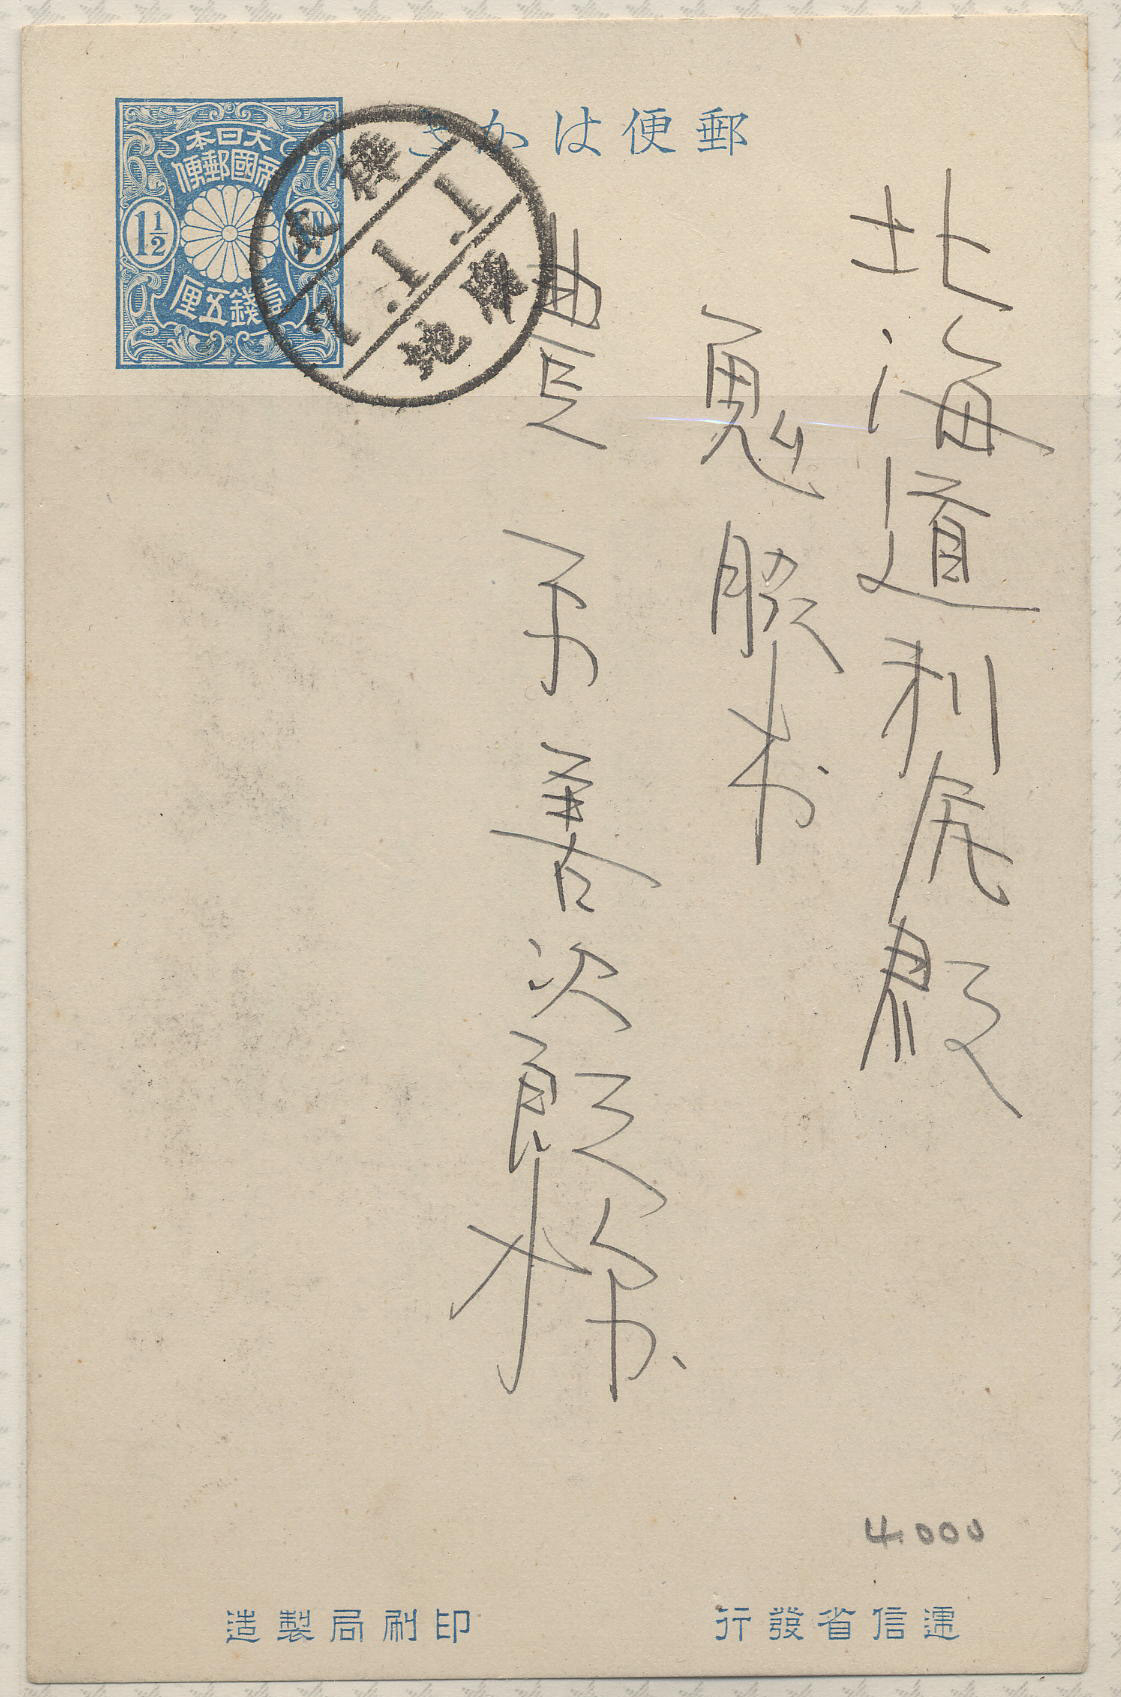 郵便はかき
大日本
帝國郵便
1½
壹錢五厘
樺太
7.1.1
北海道利尻郡
鬼脇村
吾次郎様
4.000
遞信省發行
印刷局製造